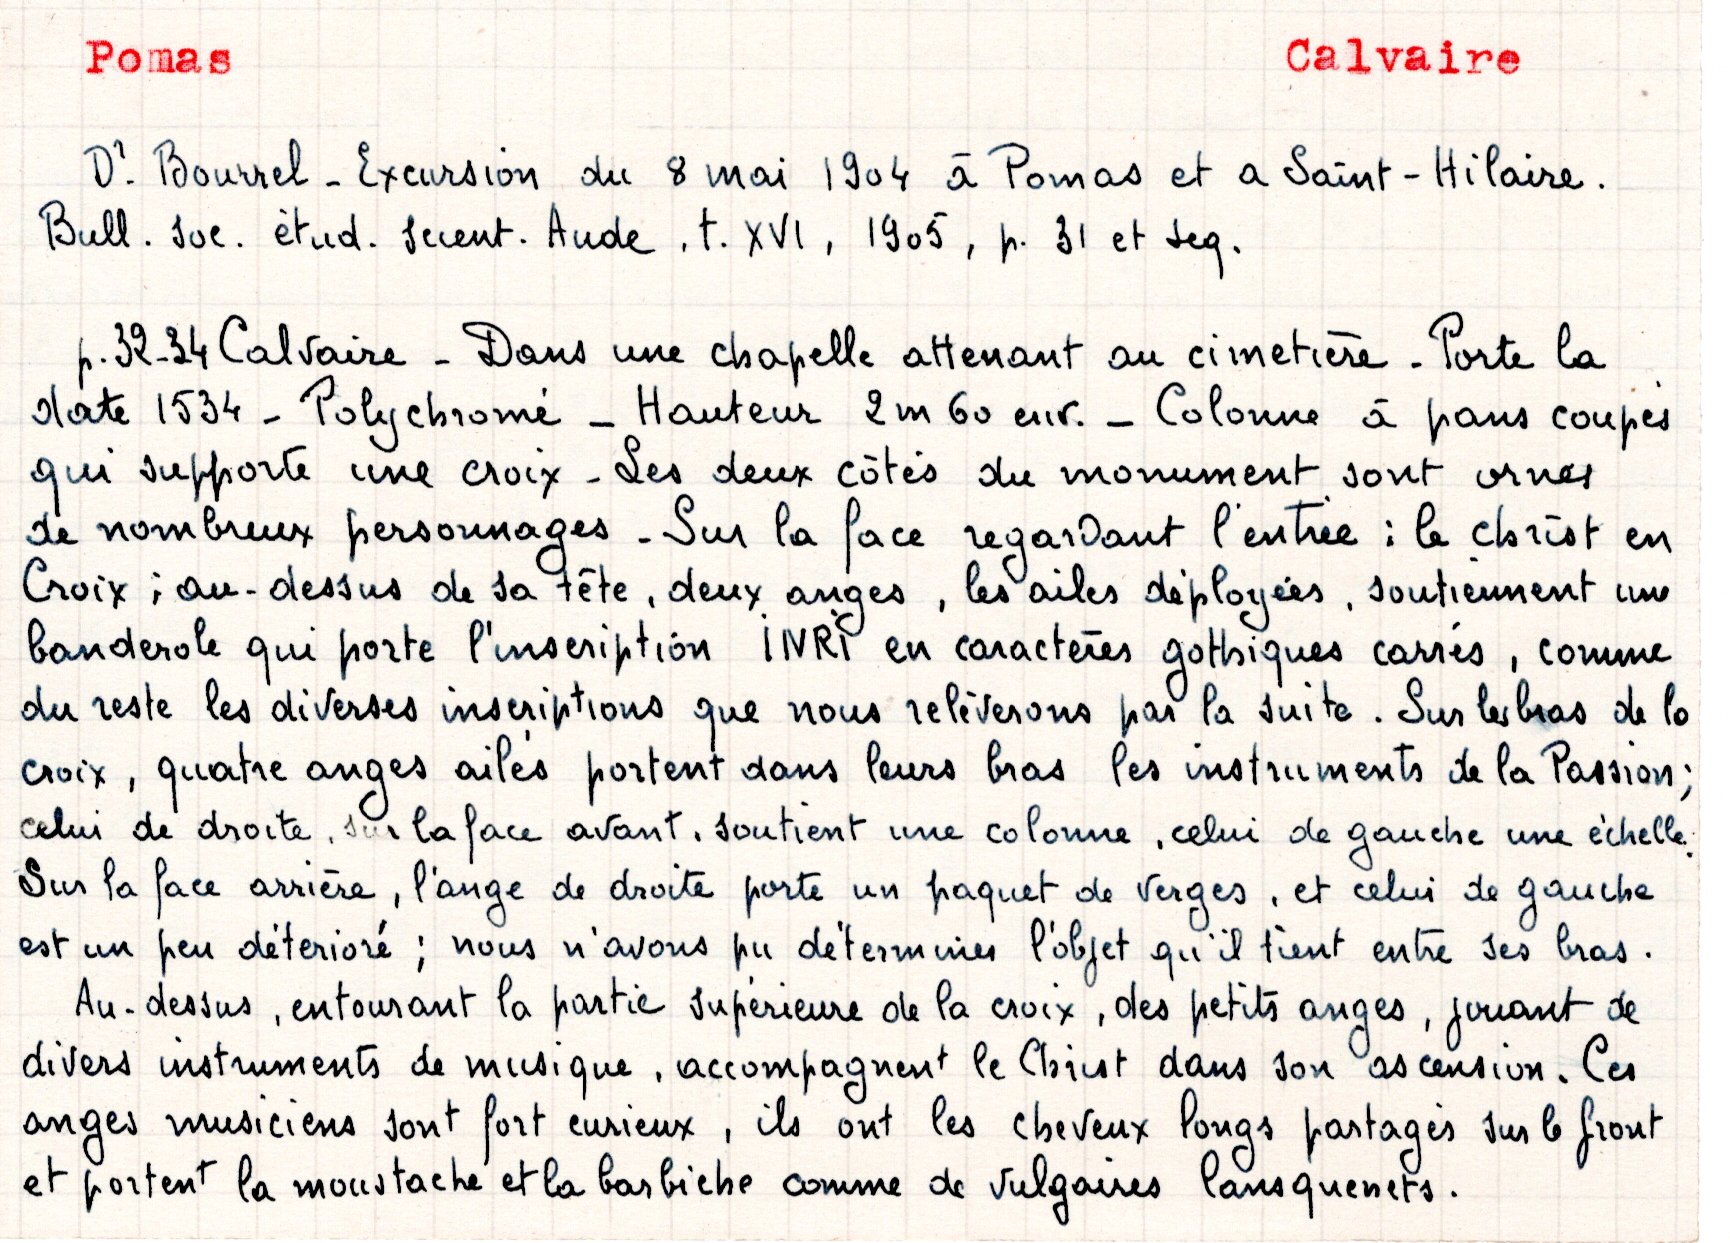 Pomas Calvaire
Dr. Bourrel - Excursion du 8 mai 1904 à Pomas et a Saint-Hilaire.
Bull. soc. étud. scient. Aude, t. XVI, 1905, p. 31 et seq.
p. 32-34 Calvaire - Dans une chapelle attenant au cimetière - Porte la
date 1534 - Polychromé - Hauteur 2m60 env. - Colonne à pans coupés
qui supporte une croix - Les deux côtés du monument sont ornés
de nombreux personnages - Sur la face regardant l'entrée : le christ en
Croix ; au-dessus de sa tête, deux anges, les ailes déployées, soutiennent une
banderole qui porte l'inscription INRI en caractères gothiques carrés, comme
du reste les diverses inscriptions que nous relèverons par la suite. Sur les bras de la
croix, quatre anges ailés portent dans leurs bras les instruments de la Passion ;
celui de droite, sur la face avant, soutient une colonne, celui de gauche une échelle.
Sur la face arrière, l'ange de droite porte un paquet de verges, et celui de gauche
est un peu déterioré ; nous n'avons pu déterminer l'objet qu'il tient entre ses bras.
Au-dessus, entourant la partie supérieure de la croix, des petits anges, jouant de
divers instruments de musique, accompagnent le Christ dans son ascension. Ces
anges musiciens sont fort curieux, ils ont les cheveux longs partagés sur le front
et portent la moustache et la barbiche comme de vulgaires lansquenets.